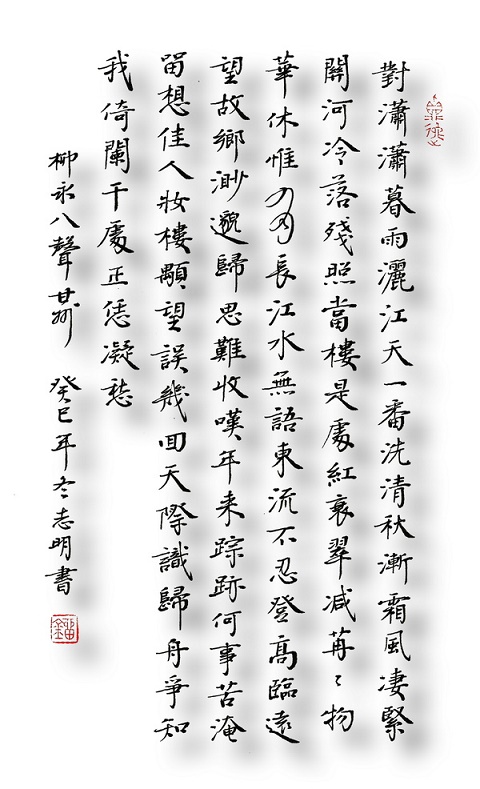 對瀟瀟暮雨灑江天一番洗清秋漸霜風凄緊
關河冷落殘照當樓是處紅衰翠减苒〻物
華休惟有長江水無語東流不忍登高臨遠
望故鄉渺邈歸思難收嘆年来踪跡何事苦淹
留想佳人妝樓顒望誤幾回天際識歸舟爭知
我倚闌干處正恁凝愁
柳永八聲甘州 癸巳年冬志明書